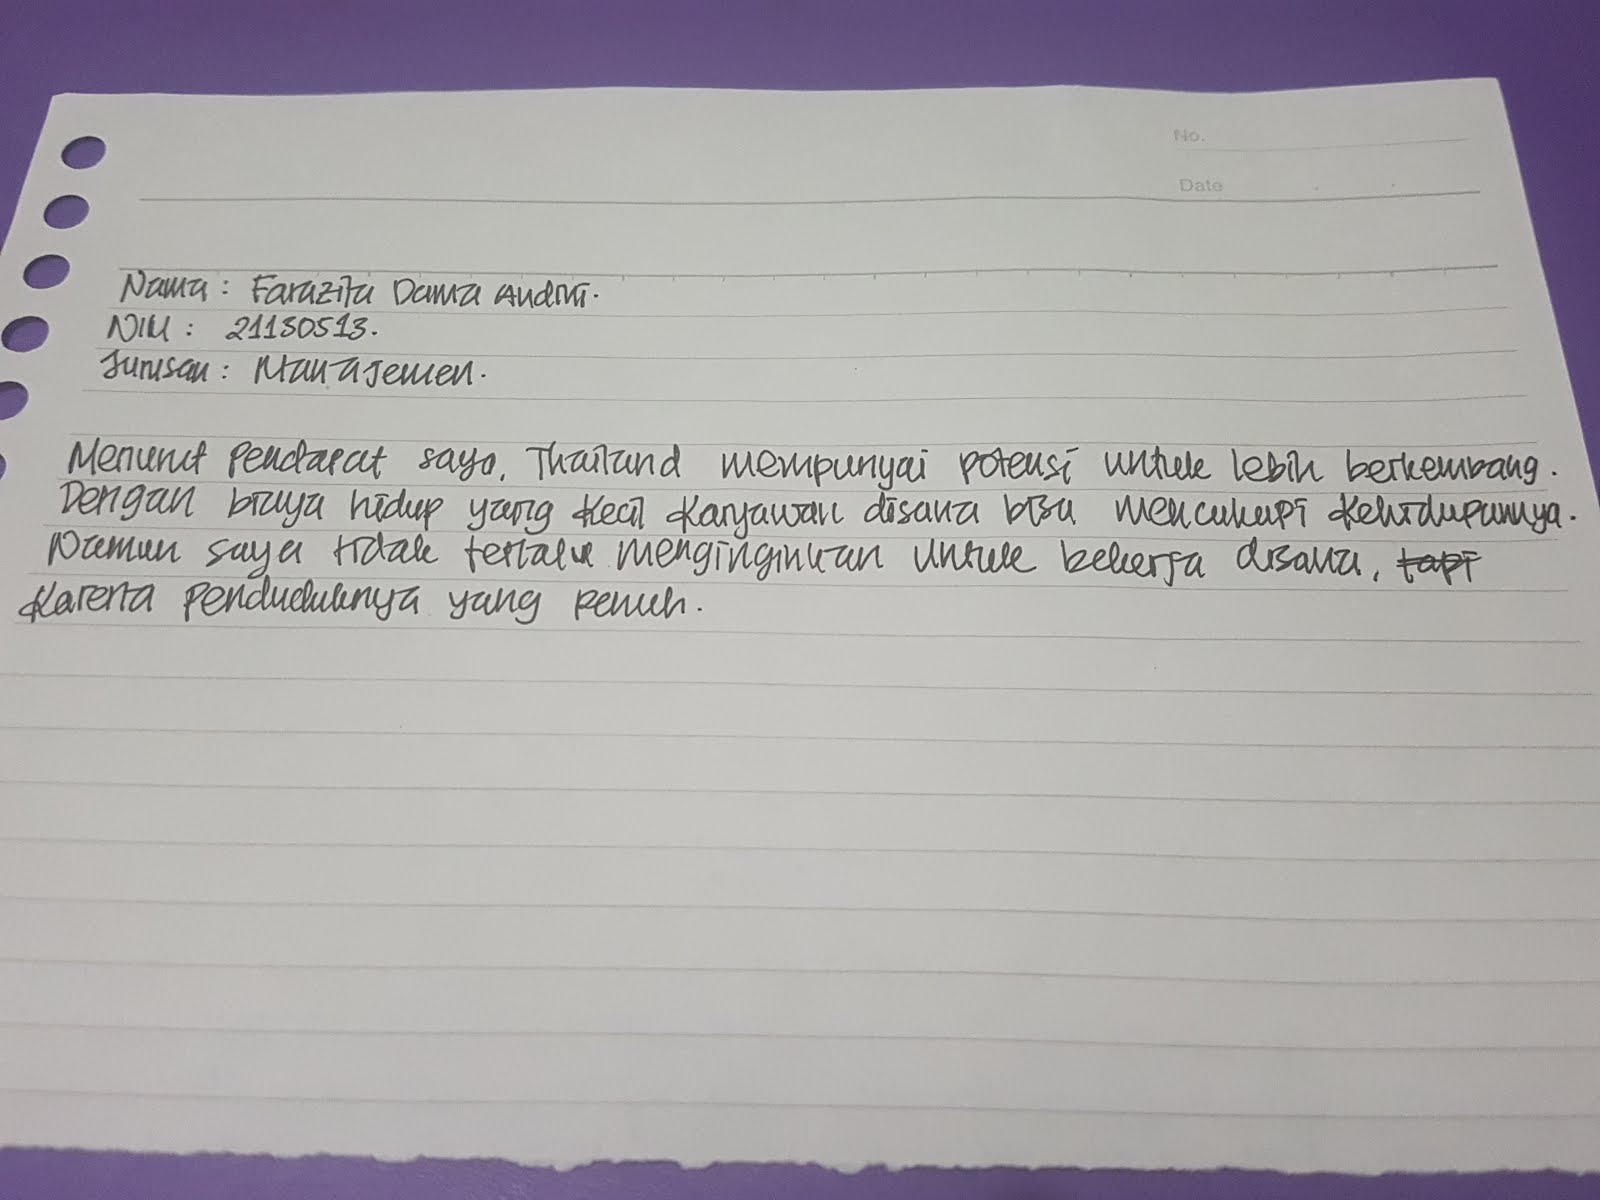 No.
Date
Nama : Farazita Dama Andini.
NIM : 21130513.
Jurusan : Manajemen.
Menurut pendapat saya, Thailand mempunyai potensi untuk lebih berkembang.
Dengan biaya hidup yang kecil karyawan disana bisa mencukupi kehidupannya.
Namun saya tidak terlalu menginginkan untuk bekerja disana, tapi
karena penduduknya yang penuh.